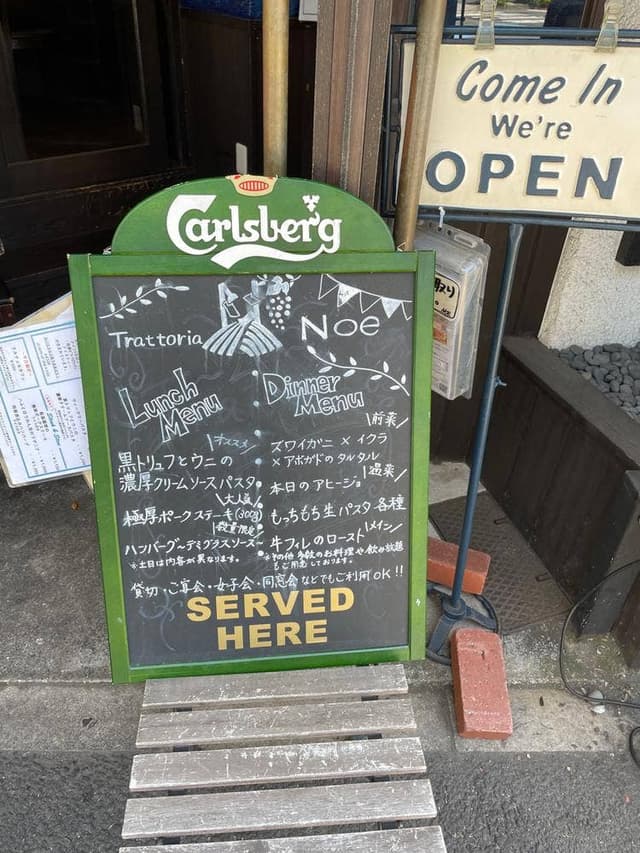 Come In
We're
OPEN
Carlsberg
Trattoria Noe
Lunch
Menu
\オススメ/
黒トリュフとウニの
濃厚クリームソースパスタ
\大人気/
極厚ポークステーキ(300g)
\数量限定/
ハンバーグ~デミグラスソース~
※土日は内容が異なります。
Dinner
Menu
\前菜/
ズワイガニ × イクラ
× アボカドのタルタル
\温菜/
本日のアヒージョ
もっちもち生パスタ各種
\メイン/
牛フィレのロースト
※その他多数のお料理や飲み放題
もご用意しております。
貸切・ご宴会・女子会・同窓会などでもご利用OK!!
SERVED
HERE